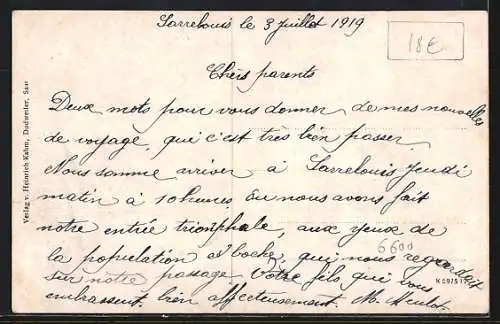 Sarrelouis le 3 Juillot 1919
18€
Chèrs parents
Deux mots pour vous donner de mes nouvelles
de voyage, qui c'est très bien passer
Nous somme arriver à Sarrelouis Jeudi
matin à 10 heures, ou nous avons fait
notre entrée triomphale, aux yeux de
la population boche, qui nous regardait
6600
sur notre passage. Votre fils qui vous
embrassent bien affecteusement. M.
Verlag v. Heinrich Kahn, Dudweiler, Saar